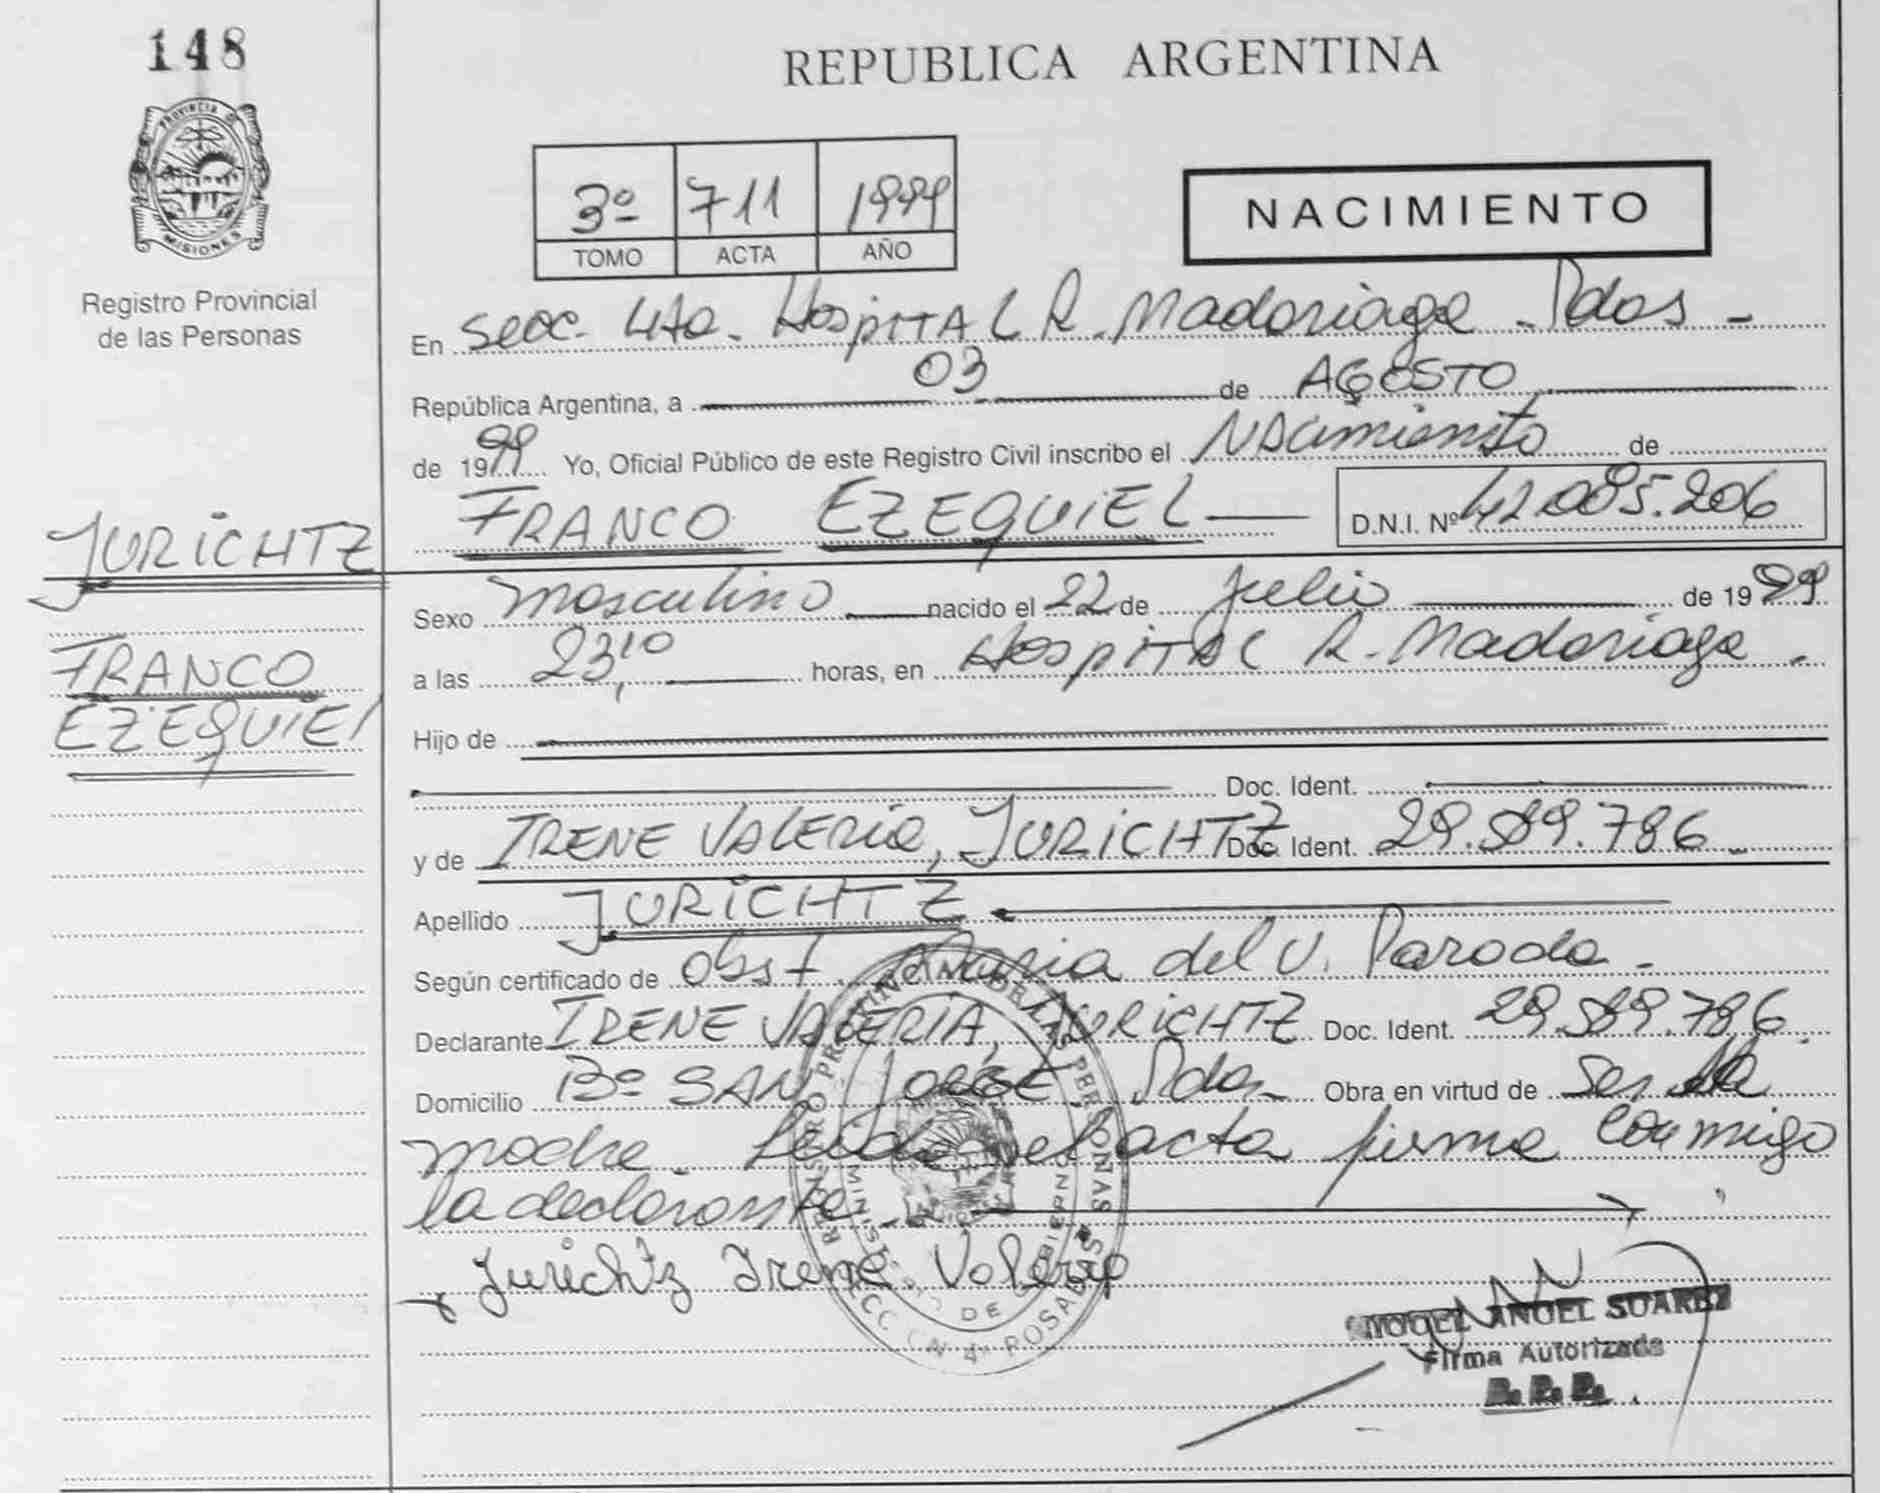 148
PROVINCIA DE
MISIONES
Registro Provincial
de las Personas
REPUBLICA ARGENTINA
3º 711 1999
TOMO ACTA AÑO
NACIMIENTO
En Secc. 4ta. Hospital R. Madariaga - Pdas -
República Argentina, a 03 de AGOSTO
de 1999 Yo, Oficial Público de este Registro Civil inscribo el Nacimiento de
FRANCO EZEQUIEL D.N.I. Nº 42.085.206
JURICHTZ
FRANCO
EZEQUIEL
Sexo masculino nacido el 22 de Julio de 1999
a las 23,10 horas, en Hospital R. Madariaga.
Hijo de
Doc. Ident.
y de IRENE VALERIA, JURICHTZ Doc. Ident. 29.589.786
Apellido JURICHTZ
Según certificado de Obst. Maria del V. Paroda -
Declarante IRENE VALERIA, JURICHTZ Doc. Ident. 29.589.786
Domicilio Bº SAN JORGE, Pdas Obra en virtud de Ser la
madre. Leida el acta firma conmigo
la declarante.
Jurichtz Irene Valeria
REGISTRO PROVINCIAL DE LAS PERSONAS
POSADAS
MIGUEL ANGEL SUAREZ
Firma Autorizada
R. P. P.